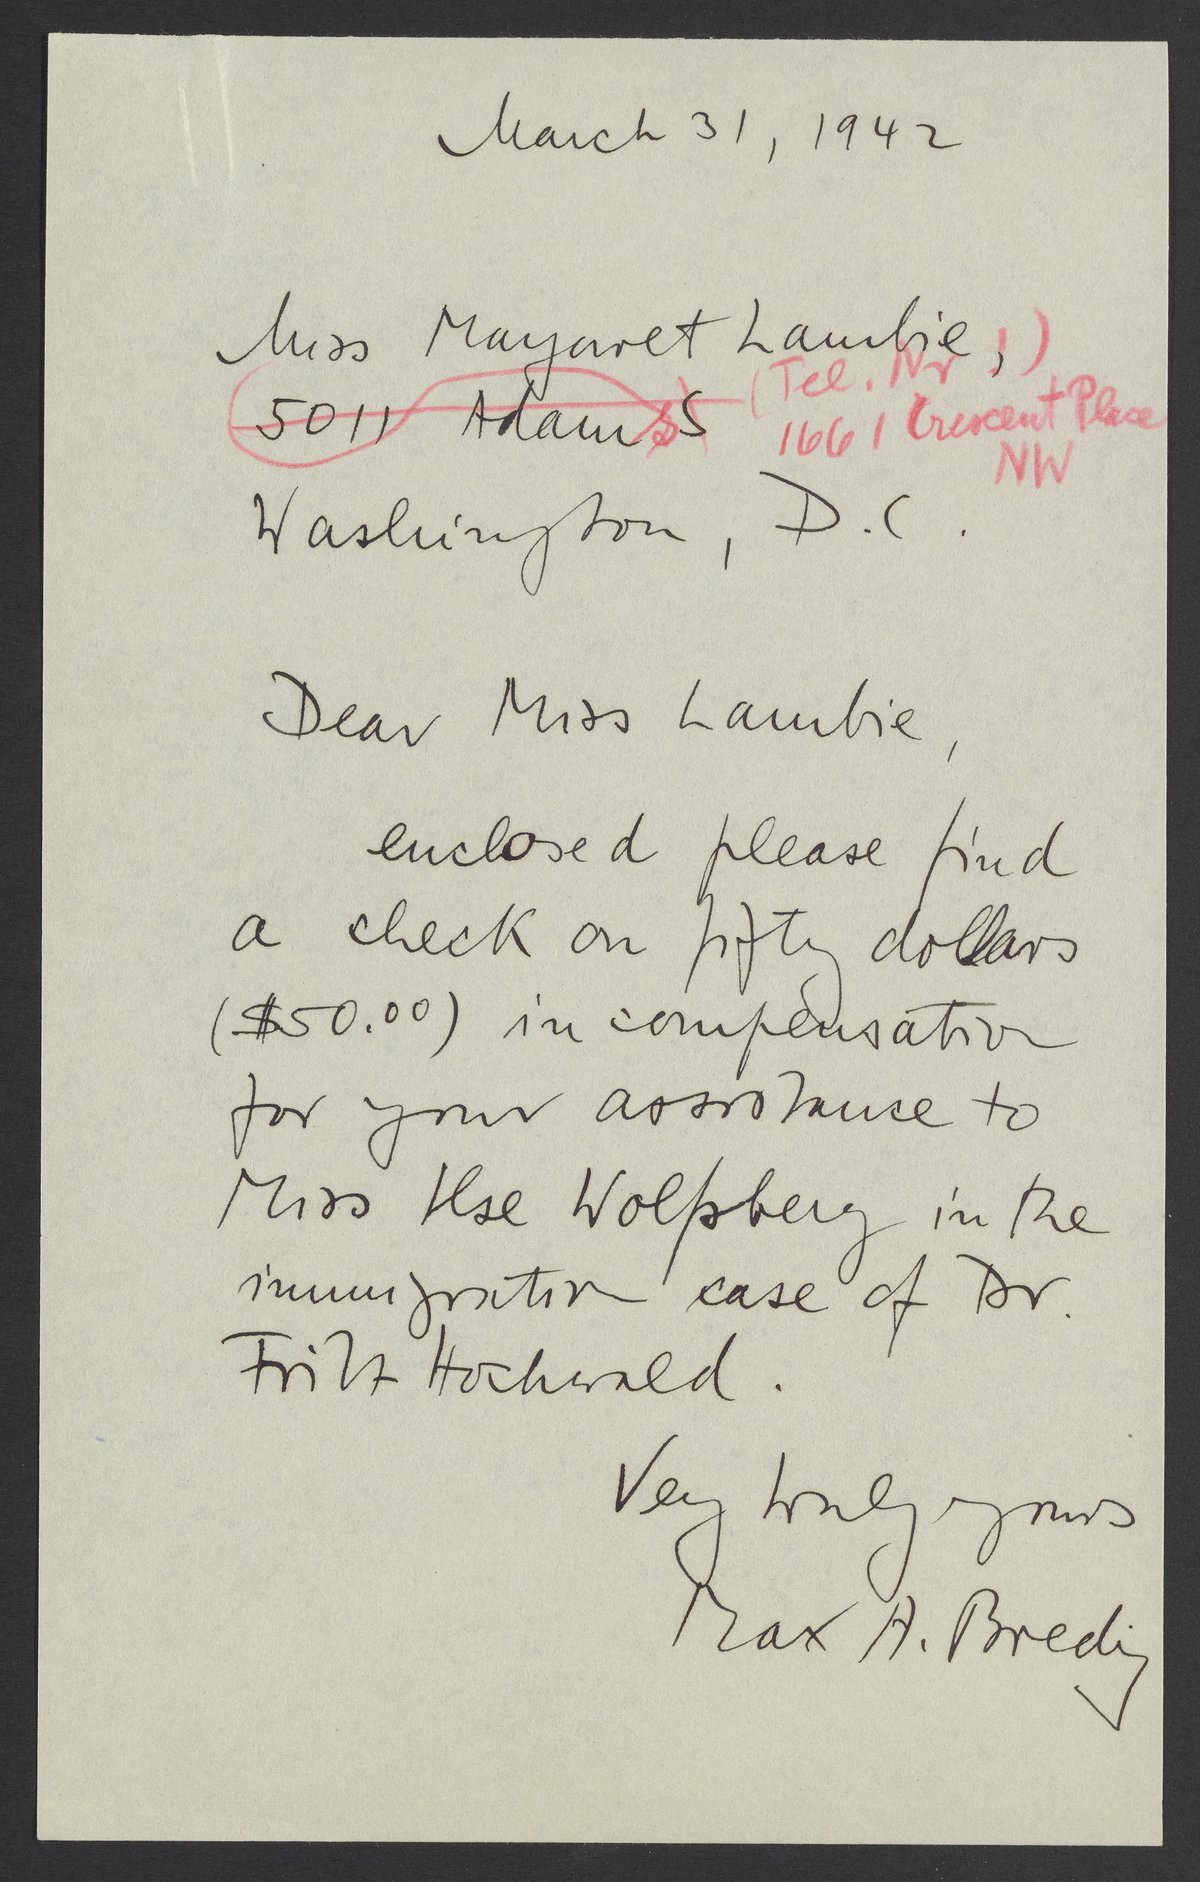 March 31, 1942
Miss Margaret Lambie,
(Tel. Nr!)
5011 Adams
1661 Crescent Place
NW
Washington, D.C.
Dear Miss Lambie,
enclosed please find
a check on fifty dollars
($50.00) in compensation
for your assistance to
Miss Ilse Wolfsberg in the
immigration case of Dr.
Fritz Hochwald.
Very truly yours
Max A. Bredig